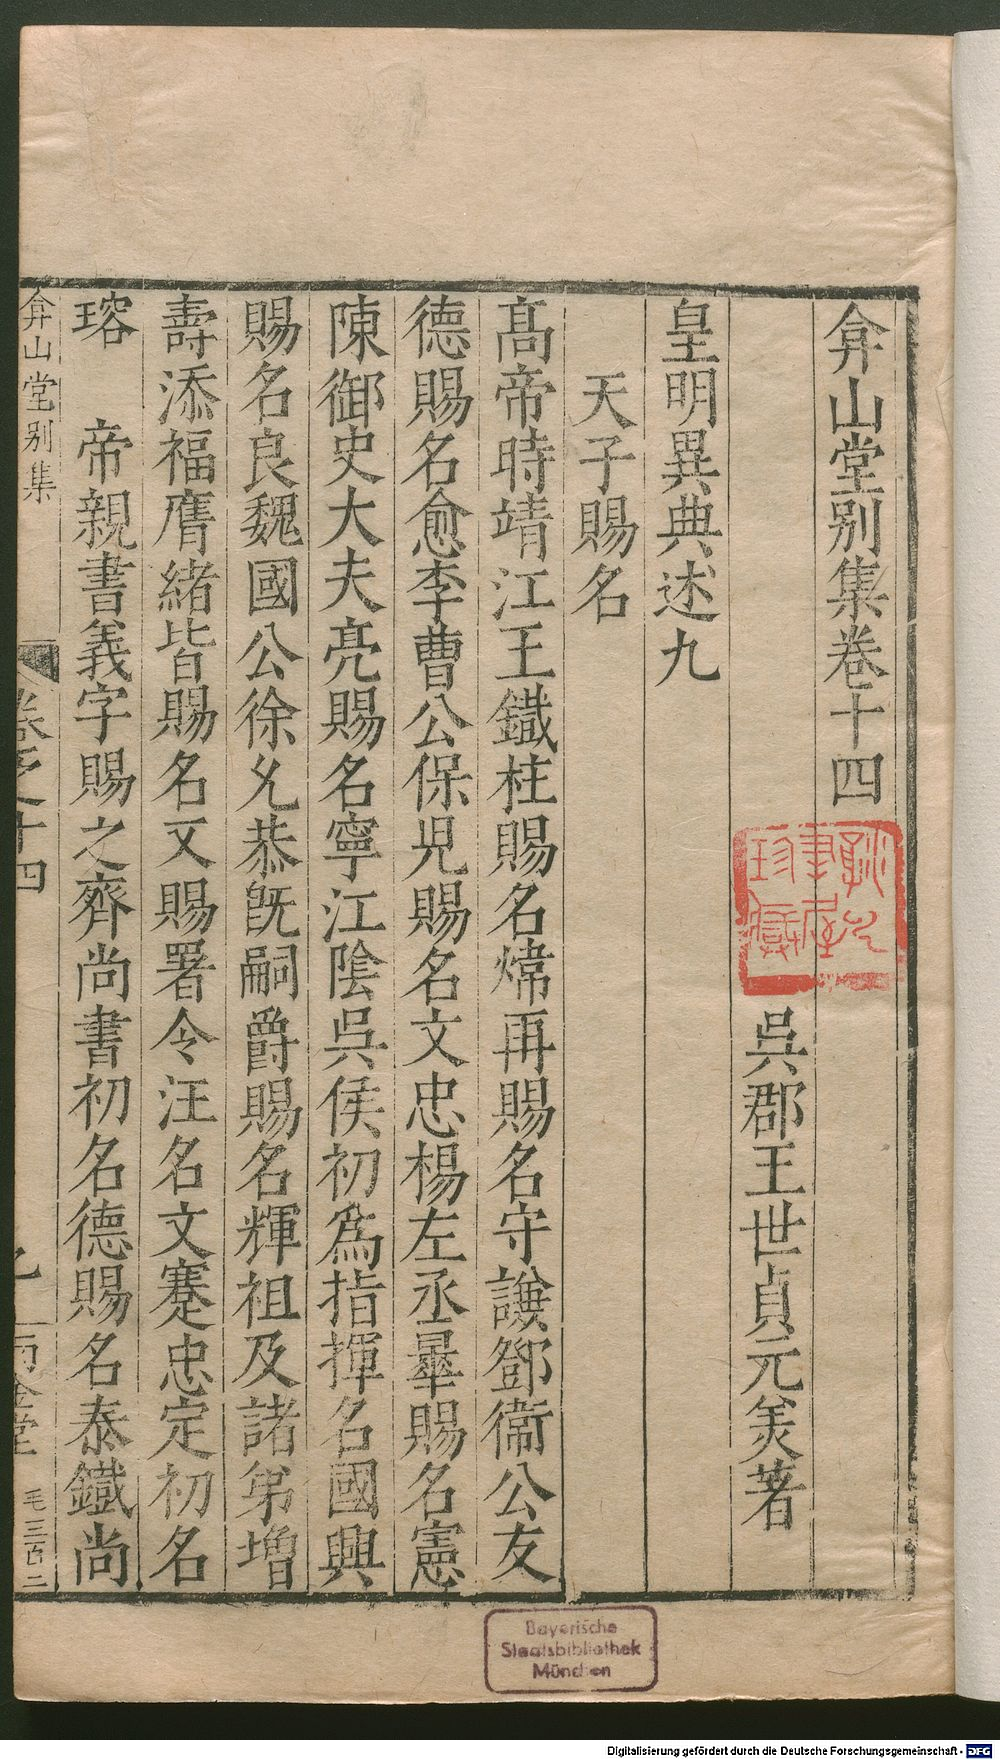 弇山堂別集卷十四
吳郡王世貞元美著
皇明異典述九
天子賜名
高帝時靖江王鐡柱賜名煒再賜名守謙鄧衛公友
德賜名愈李曹公保兒賜名文忠楊左丞畢賜名憲
陳御史大夫亮賜名寧江陰吳侯初為指揮名國興
賜名良魏國公徐允恭旣嗣爵賜名輝祖及諸弟增
壽添福膺緒皆賜名又賜署令汪名文蹇忠定初名
瑢 帝親書義字賜之齊尚書初名德賜名泰鐡尚
弇山堂別集
卷之十四
毛三百二
Bayerische
Staatsbibliothek
München
Digitalisierung gefördert durch die Deutsche Forschungsgemeinschaft - DFG